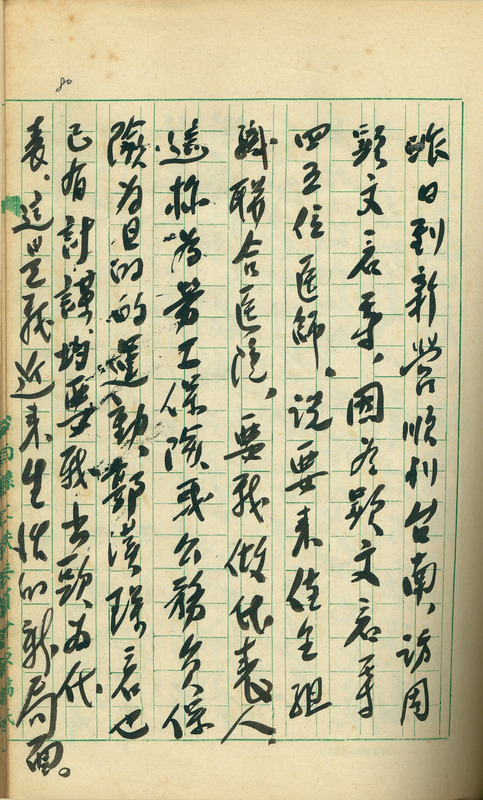 80
昨日到新營順到台南、訪周
顯文君等、因為顯文君等
四五位医師、說要來健全組
織聯合医院、要我做代表人
這称為勞工保險或公務負保
險為目的的運動、郭漢琛君也
已有計謀、均要我出頭為代
表、這是我近來生活的新局面。